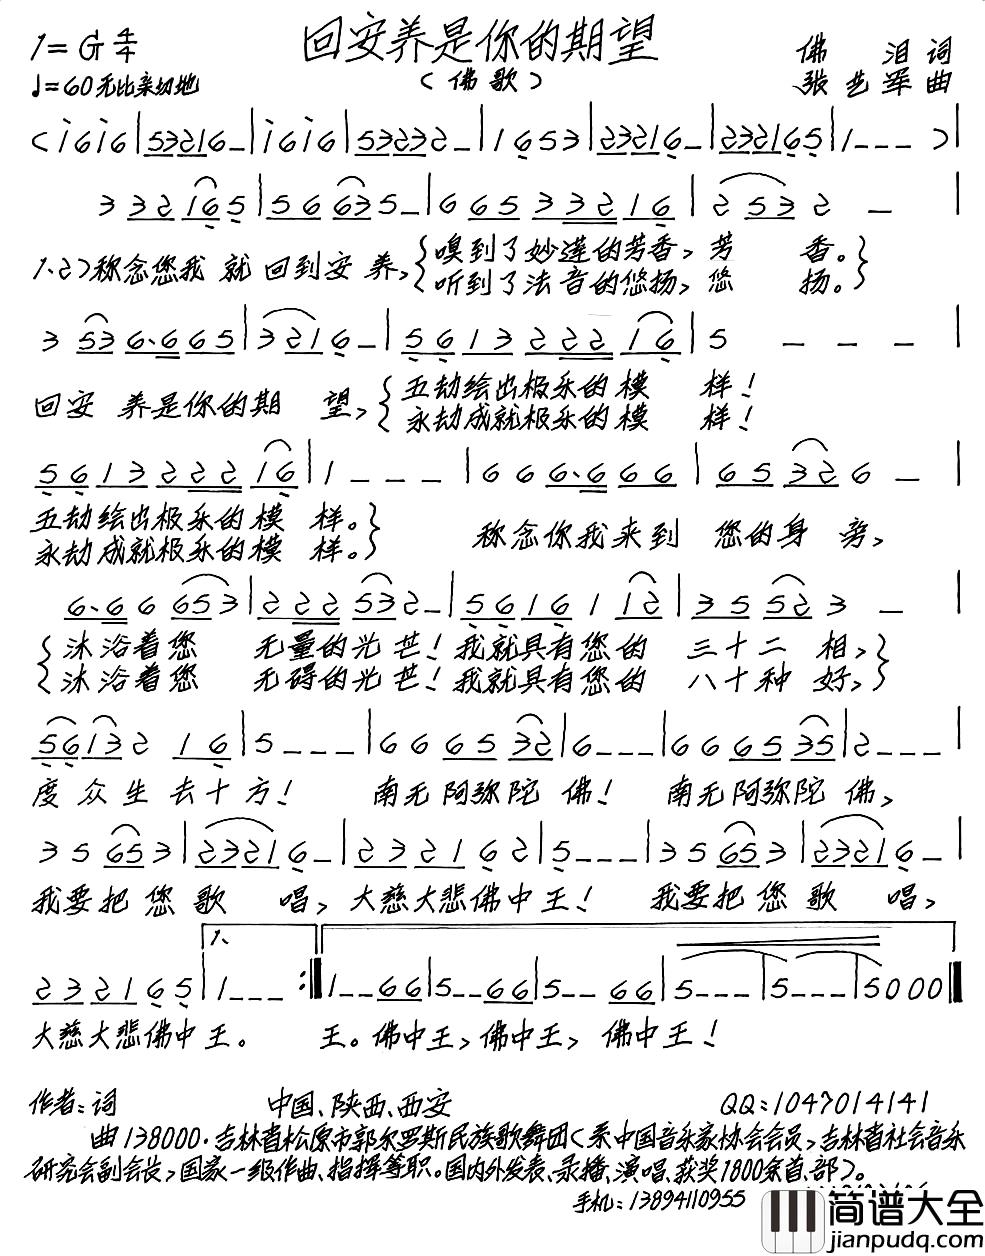 回安养是你的期望
1=G 4/4
（佛歌）
佛 泪 词
♩=60 无比亲切地
张艺军 曲
( i 6 i 6 | 5 3 2 1 6 – | i 6 i 6 | 5 3 2 3 2 – | 1 6 5 3 | 2 3 2 1 6 – | 2 3 2 1 6 5 | 1 – – – ) |
3 3 2 1 6 5 | 5 6 6 3 5 – | 6 6 5 3 3 2 1 6 | 2 5 3 2 – |
1.2)称念您我 就 回到安 养，{嗅到了妙莲的芳香，芳 香。}
{听到了法音的悠扬，悠 扬。}
3 5 3 6. 6 6 5 | 3 2 1 6 – | 5 6 1 3 2 2 2 1 6 | 5 – – – |
回安 养是你的期 望，{五劫绘出极乐的模 样！
{永劫成就极乐的模 样！
5 6 1 3 2 2 2 1 6 | 1 – – – | 6 6 6. 6 6 6 | 6 5 3 2 6 – |
五劫绘出极乐的模 样。}
称念你我来到 您的身 旁，
永劫成就极乐的模 样。}
6. 6 6 6 5 3 | 2 2 2 5 3 2 – | 5 6 1 6 1 1 2 | 3 5 5 2 3 – |
{沐浴着您 无量的光芒！我就具有您的 三十二 相，}
{沐浴着您 无碍的光芒！我就具有您的 八十种 好，}
5 6 1 3 2 1 6 | 5 – – – | 6 6 6 5 3 2 | 6 – – – | 6 6 6 5 3 5 | 2 – – – |
度 众 生 去十方！ 南无阿弥陀 佛！ 南无阿弥陀 佛，
3 5 6 5 3 | 2 3 2 1 6 – | 2 3 2 1 6 2 | 5 – – – | 3 5 6 5 3 | 2 3 2 1 6 – |
我要把 您 歌 唱，大慈大悲佛中王！ 我要把您歌 唱，
1.
2 3 2 1 6 5 | 1 – – – :‖ 1 – – 6 6 | 5 – – 6 6 | 5 – – 6 6 | 5 – – – | 5 – – – | 5 0 0 0 ‖
大慈大悲佛中 王。 王。佛中王，佛中王，佛中王！
作者：词 中国、陕西、西安 QQ：1047014141
曲 138000.吉林省松原市郭尔罗斯民族歌舞团（系中国音乐家协会会员，吉林省社会音乐
研究会副会长，国家一级作曲、指挥等职。国内外发表、录播、演唱、获奖1800余首、部）。
手机：13894110955
简谱大全
jianpudq.com